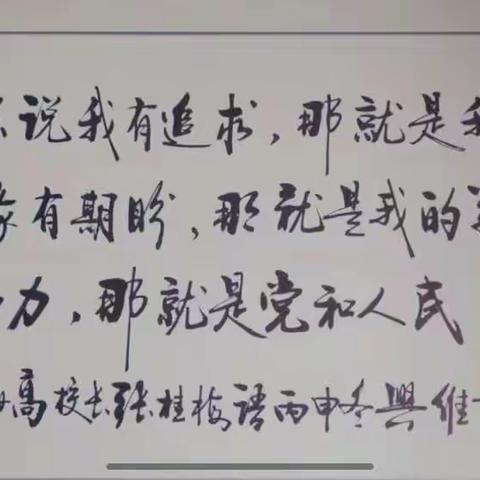 说我有追求，那就是我
有期盼，那就是我的
力，那就是党和人民
高校长张桂梅语丙申冬興维